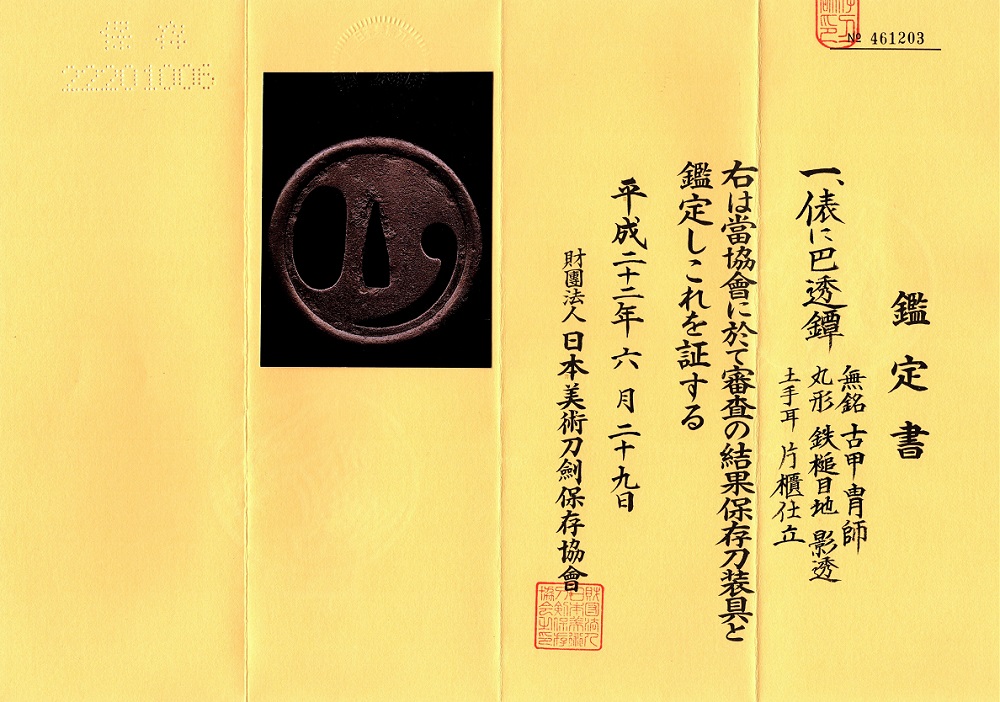 № 461203
鑑定書
一、俵に巴透鐔
無銘 古甲冑師
丸形 鉄槌目地 影透
土手耳 片櫃仕立
右は當協會に於て審査の結果保存刀装具と
鑑定しこれを証する
平成二十二年六月二十九日
財團法人日本美術刀劍保存協會
財団法人
日本美術
刀剣保存
協会之印
保存
22201006